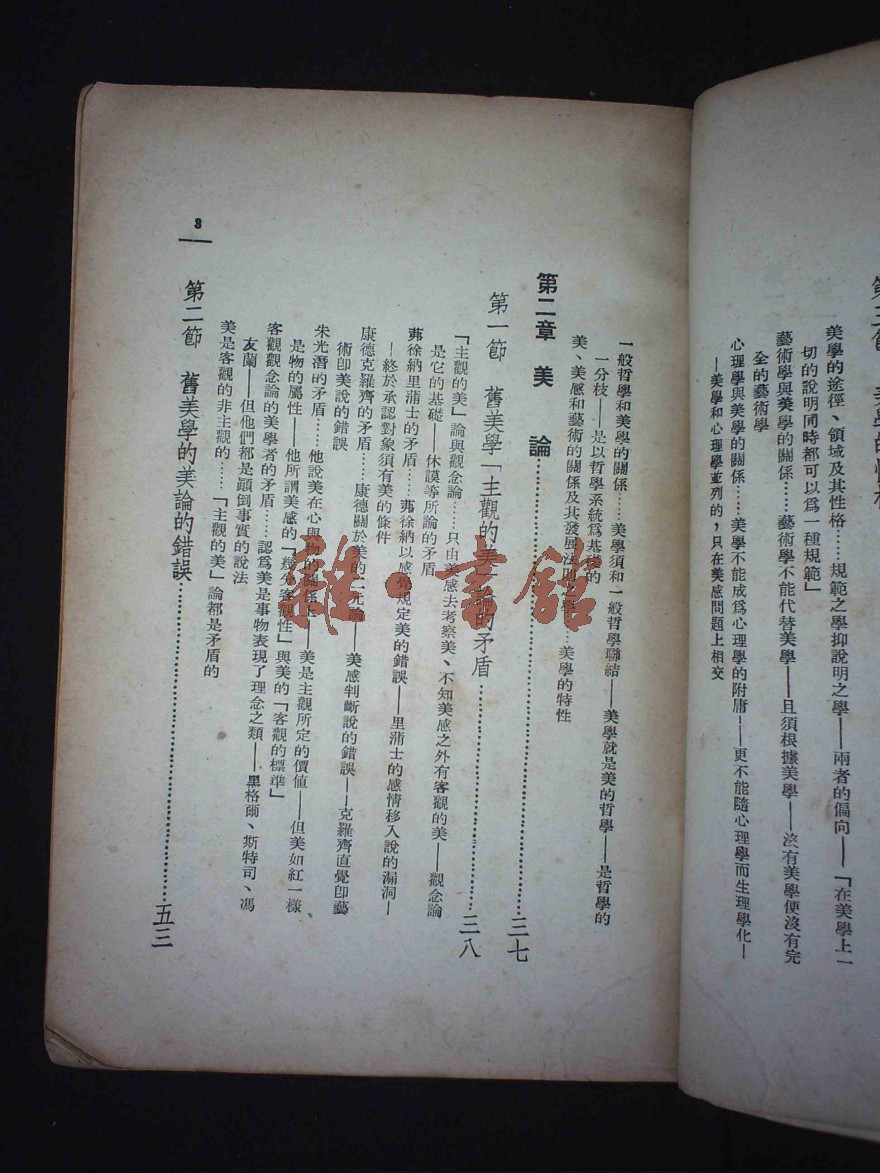 美學的途徑、領域及其性格……規範之學抑說明之學——兩者的偏向——「在美學上一
切的說明同時都可以爲一種規範」
藝術學與美學的關係……藝術學不能代替美學——且須根據美學——沒有美學便沒有完
全的藝術學
心理學與美學的關係……美學不能成爲心理學的附庸——更不能隨心理學而生理學化—
—美學和心理學並列的，只在美感問題上相交
一般哲學和美學的關係……美學須和一般哲學聯結——美學就是美的哲學——是哲學的
一分枝——是以哲學系統爲基礎的
美、美感和藝術的關係及其發展法則之學……美學的特性
第二章 美 論……三七
第一節 舊美學「主觀的美」論的矛盾……三八
「主觀的美」論與觀念論……只由美感去考察美、不知美感之外有客觀的美——觀念論
是它的基礎——休謨等所論的矛盾
茀徐納里蒲士的矛盾……茀徐納以感覺規定美的錯誤——里蒲士的感情移入說的漏洞—
—終於承認對象須有美的條件
康德克羅齊的矛盾……康德關於美的二元論——美感判斷說的錯誤——克羅齊直覺卽藝
術卽美說的錯誤
朱光潛的矛盾……他說美在心與物的關係上——美是主觀所定的價値——但美如紅一樣
是物的屬性——他所謂美感的「幾分客觀性」與美的「客觀的標準」
客觀觀念論的美學者的矛盾……認爲美是事物表現了理念之類——黑格爾、斯特司、馮
友蘭——但他們都是顚倒事實的說法
美是客觀的非主觀的……「主觀的美」論都是矛盾的
第二節 舊美學的美論的錯誤……五三
3
雜·書館